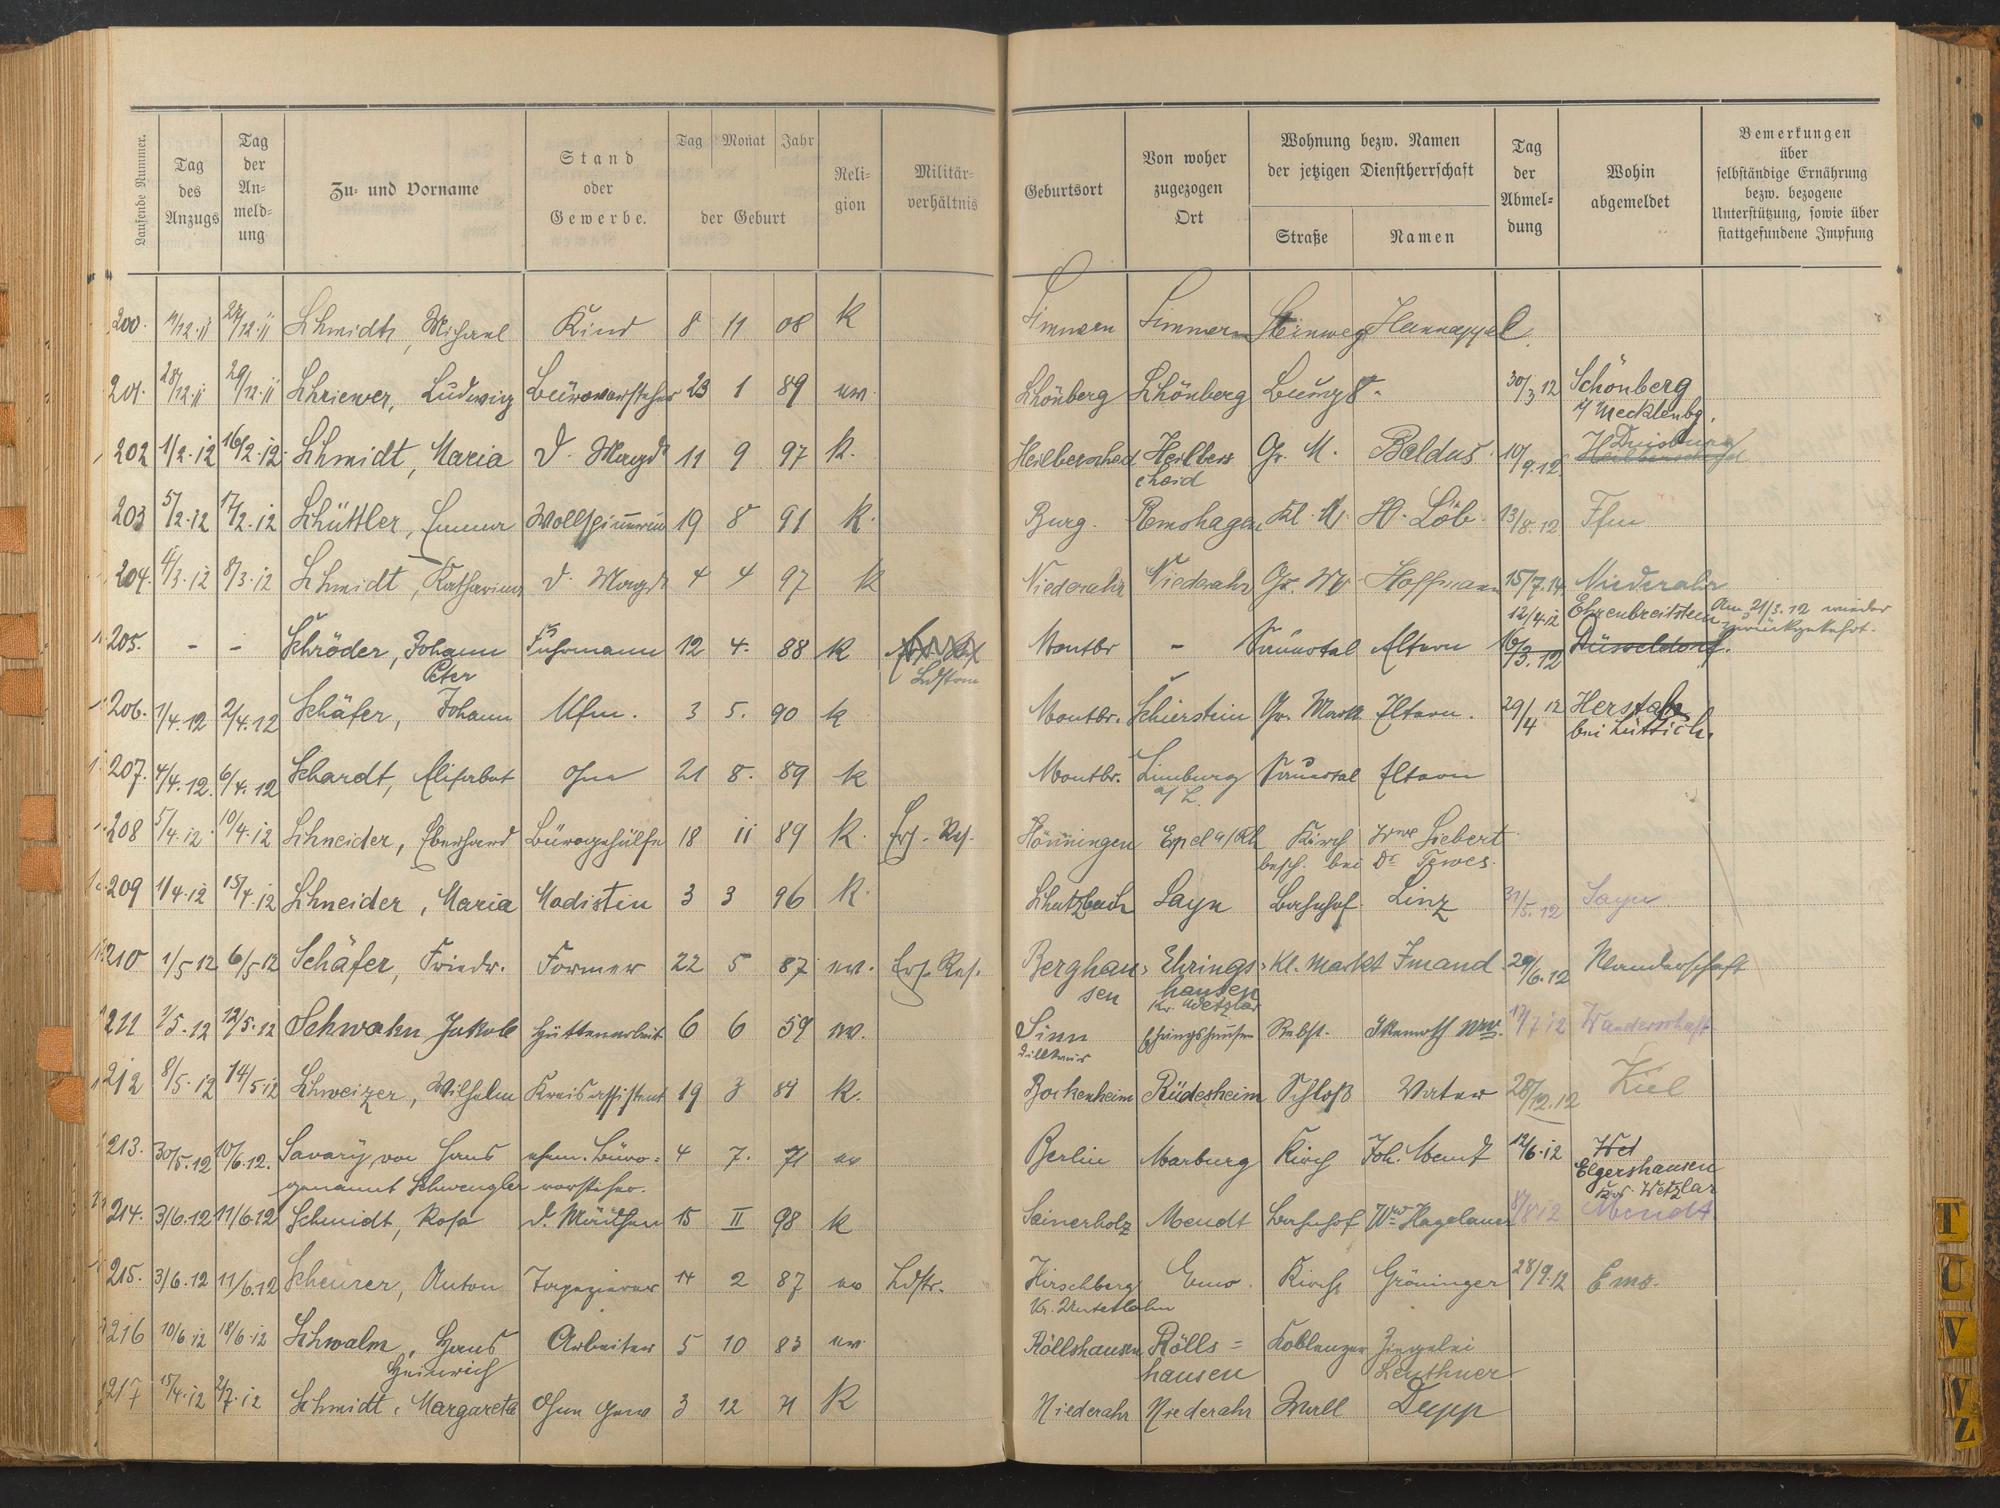 Laufende Nummer.
Tag des Anzugs
Tag der Anmeldung
Zu- und Vorname
Stand oder Gewerbe.
Tag Monat Jahr
der Geburt
Religion
Militärverhältnis
Geburtsort
Von woher zugezogen Ort
Wohnung bezw. Namen der jetzigen Dienstherrschaft
Straße Namen
Tag der Abmeldung
Wohin abgemeldet
Bemerkungen über selbständige Ernährung bezw. bezogene Unterstützung, sowie über stattgefundene Impfung
200. Schmidt, Michael Kind 8 11 08 k Simmern Simmern Steinweg Hannappel
201. 28/12.11 29/12.11 Schriewer, Ludwig Bürovorsteher 23 1 89 ev. Schönberg Schönberg Burg 8. 30/3 12 Schönberg
i/Mecklenbg.
202 1/2.12 16/2.12 Schmidt, Maria d. Magd 11 9 97 k. Heilberscheid Heilberscheid Gr. M. Baldus 10/9.12 Duisburg
203 5/2.12 17/2.12 Schüttler, Emma Wollspinnerin 19 8 91 k. Burg. Remshagen Kl. M. H. Löb. 13/8.12 Ffm
204. 6/3.12 8/3.12 Schmidt, Katharina d. Magd 4 4 97 k Niederahr Niederahr Gr. M. Hoffmann 15/7.14 Niederahr
12/4.12 Ehrenbreitstein Am 21/3.12 wieder
zurückgekehrt.
205. - - Schröder, Johann Fuhrmann 12 4. 88 k Montbr - Sauertal Eltern 16/3.12 Düsseldorf.
Peter Ldstrm
206. 1/4.12 2/4.12 Schäfer, Johann Ufm. 3 5. 90 k Montbr. Schierstein Gr. Markt Eltern. 29/4 12 Herstale
bei Lüttich.
207. 4/4.12. 6/4.12 Schardt, Elisabet ohne 21 8. 89 k Montbr. Limburg Sauertal Eltern
a/L.
208 5/4.12. 10/4.12 Schneider, Eberhard Bürogehülfe 18 11 89 k. Ers. Res. Hönningen Erpel a/Rh Kirch Wwe Siebert
besch. bei Dr. Tewes.
209 1/4.12 15/4.12 Schneider, Maria Modistin 3 3 96 k. Schutzbach Sayn Bahnhof Linz 31/5.12 Sayn
210 1/5 12 6/5 12 Schäfer, Friedr. Former 22 5 87 ev. Ers. Res. Berghausen Ehringshausen Kl. Markt Imand 29/6.12 Wanderschaft
Kr. Wetzlar
211 1/5.12 12/5.12 Schwahn Jakob Hüttenarbeit 6 6 59 ev. Sinn Ehringshausen Rebst. 17/7 12 Wanderschaft
Dillkreis
212 8/5.12 14/5 12 Schweizer, Wilhelm Kreisassistent 19 3 84 k. Bockenheim Rüdesheim Schloß Vater 28/12.12 Kiel
213. 30/5.12 10/6.12. Savary von Hans ehem. Büro- 4 7. 71 ev Berlin Marburg Kirch Joh. Mendt 12/6.12
genannt Schwengler vorsteher. Elgershausen
Kr. Wetzlar
214. 3/6.12 11/6.12 Schmidt, Rosa d. Mädchen 15 II 98 k Sainerholz Mendt Bahnhof Ww Hagelauer 8/8 12 Mendt.
215. 3/6.12 11/6.12 Scheurer, Anton Tapezierer 14 2 87 ev Ldstr. Hirschberg Ems. Kirch Gröninger 28/9.12 Ems.
Kr. Unterlahn
216 10/6.12 18/6.12 Schwalm, Hans Arbeiter 5 10 83 ev Röllshausen Rölls= Koblenzer Ziegelei
Heinrich hausen Leuthner
217 15/4.12 2/7.12 Schmidt, Margareta Ohne Gew 3 12 71 k Niederahr Niederahr Wall Depp
T
U
V
W
Z